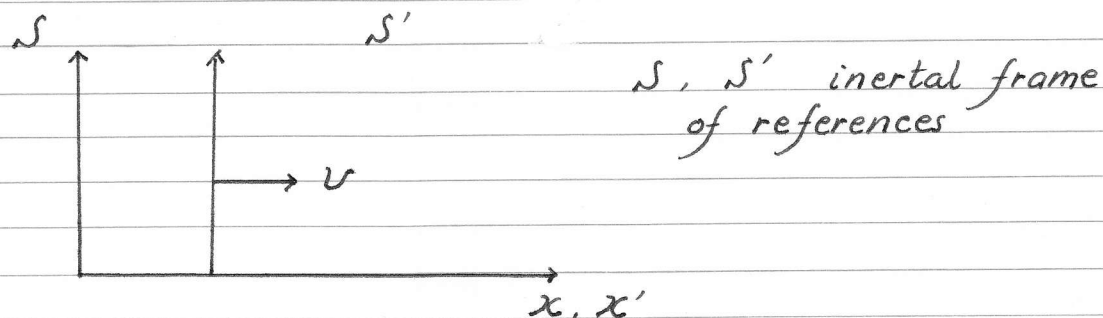 S S'
S, S' inertal frame
of references
v
x, x'